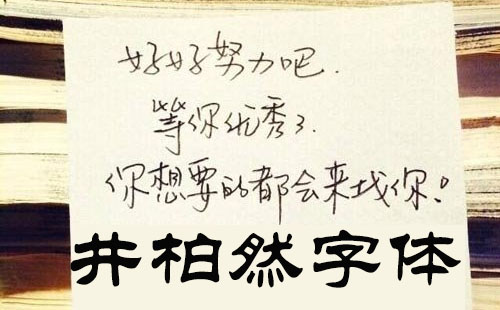 好好努力吧.
等你优秀了.
你想要的都会来找你!
井柏然字体